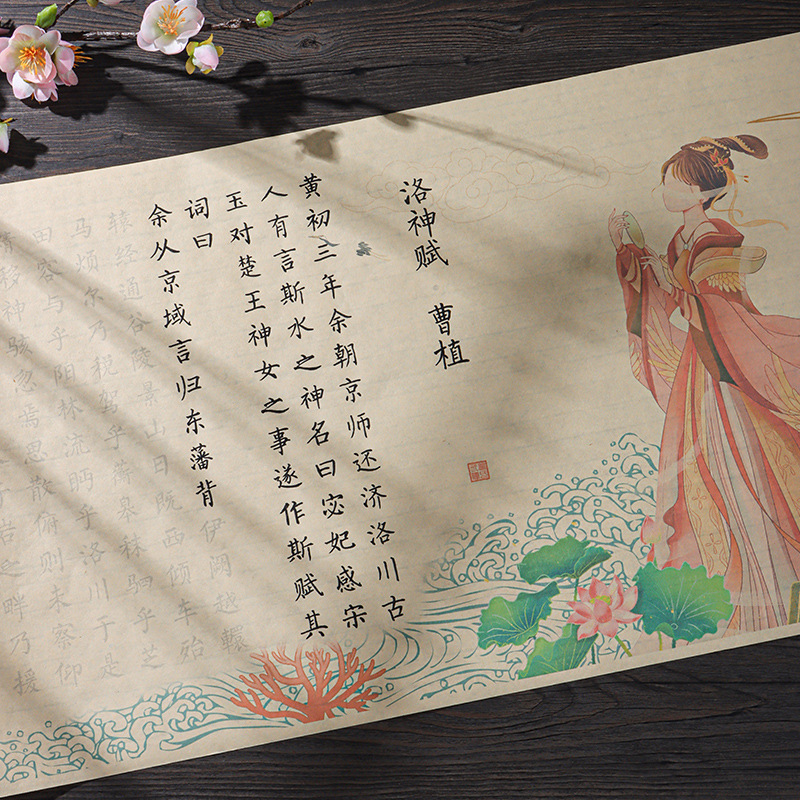 洛神赋 曹植
黄初三年余朝京师还济洛川古
人有言斯水之神名曰宓妃感宋
玉对楚王神女之事遂作斯赋其
词曰
余从京域言归东藩背伊阙越轘
辕经通谷陵景山日既西倾车殆
马烦尔乃税驾乎蘅皋秣驷乎芝
田容与乎阳林流眄乎洛川于是
精移神骇忽焉思散俯则未察仰
岩之畔乃援